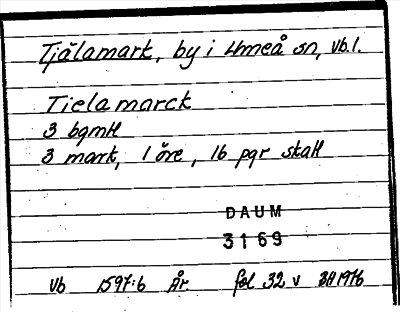 Tjälamark, by i Umeå sn, Vb.l.
Tielamarck
3 bgmtl
3 mark, 1 öre, 16 pgr skatt
DAUM
3169
Vb 1597:6 År. fol 32 v BH 1976